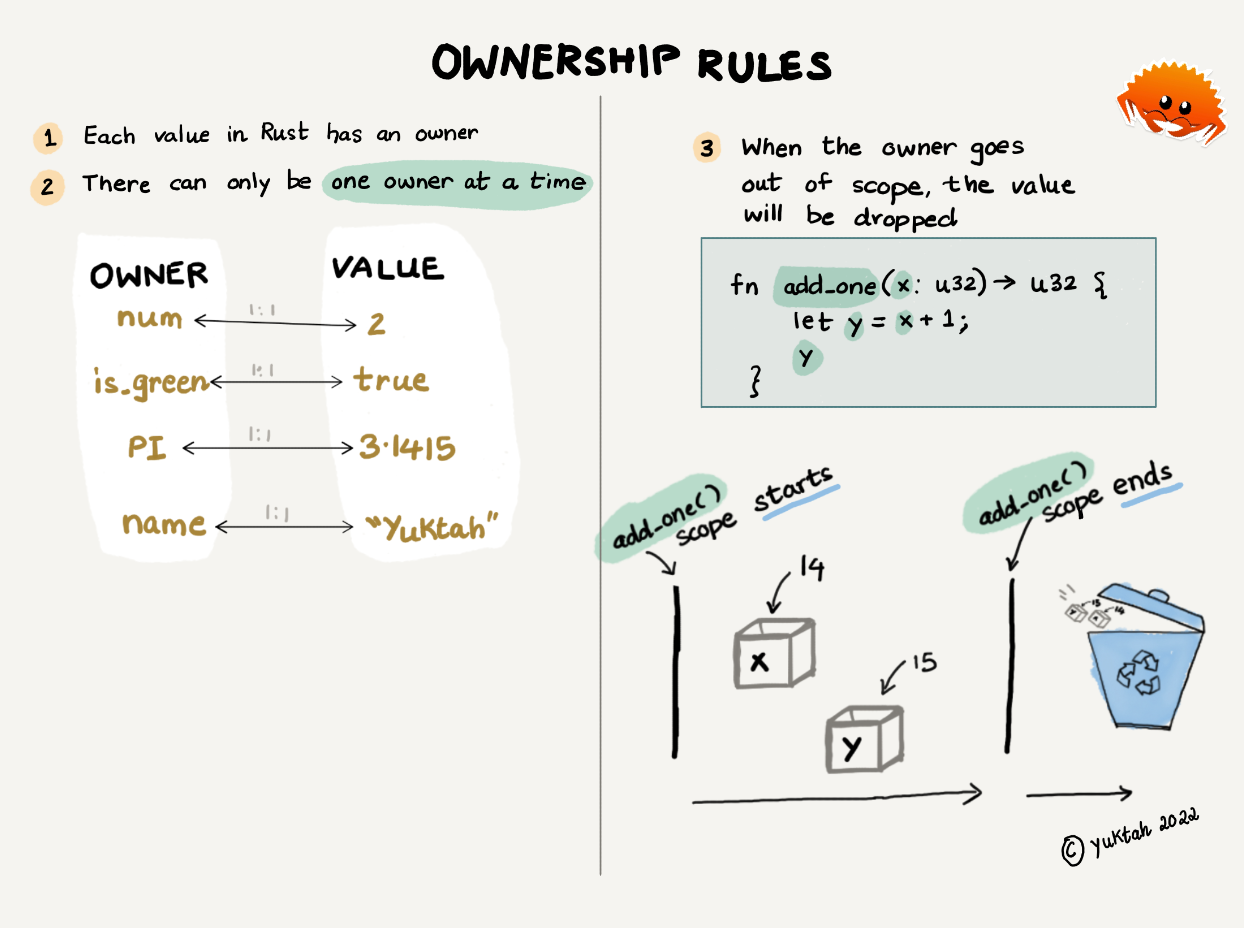 OWNERSHIP RULES
1 Each value in Rust has an owner
2 There can only be one owner at a time
OWNER VALUE
num 1:1 2
is_green 1:1 true
PI 1:1 3.1415
name 1:1 "Yuktah"
3 When the owner goes
out of scope, the value
will be dropped
fn add_one(x: u32) → u32 {
let y = x + 1;
y
}
add_one()
scope starts
14
x
15
y
add_one()
scope ends
y 15 x 14
© yuktah 2022